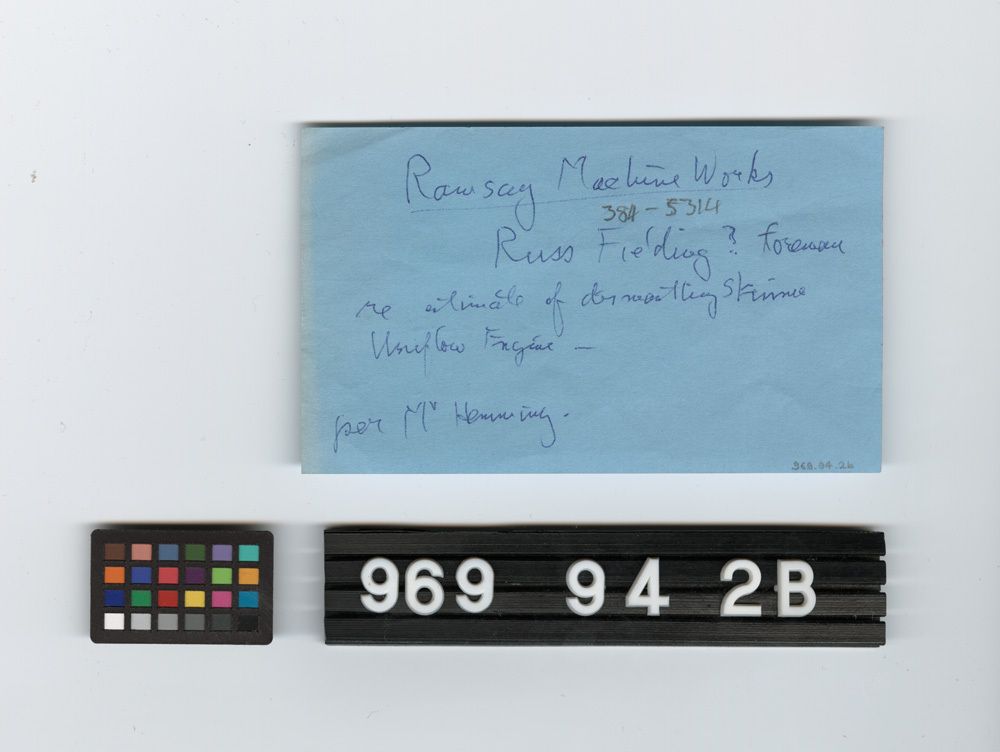 Ramsay Machine Works
384-5314
Russ Fielding? foreman
re estimate of dismantling Skinner
Uniflow Engine —
per Mr Hemming.
969.94.2b
969 94 2B